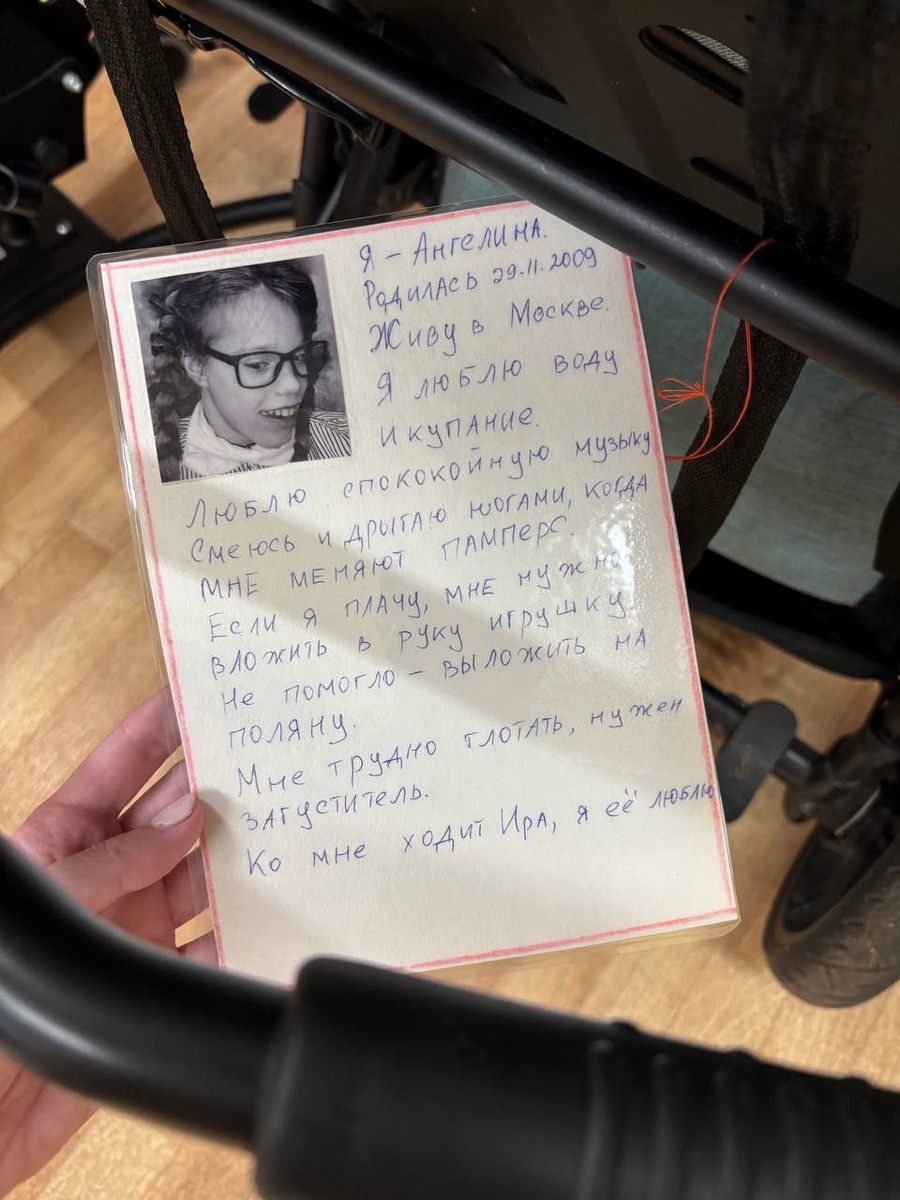 Я – Ангелина.
Родилась 29.11.2009
Живу в Москве.
Я люблю воду
и купание.
Люблю спококойную музыку
Смеюсь и дрыгаю ногами, когда
мне меняют памперс.
Если я плачу, мне нужно
вложить в руку игрушку
Не помогло – выложить на
поляну.
Мне трудно глотать, нужен
загуститель.
Ко мне ходит Ира, я её люблю